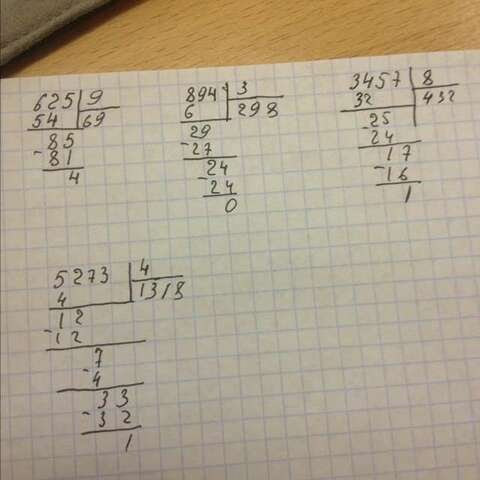 625 9
54 69
85
- 81
4
894 3
6 298
29
- 27
24
- 24
0
3457 8
32 432
25
- 24
17
- 16
1
5273 4
4 1318
12
- 12
7
- 4
33
- 32
1